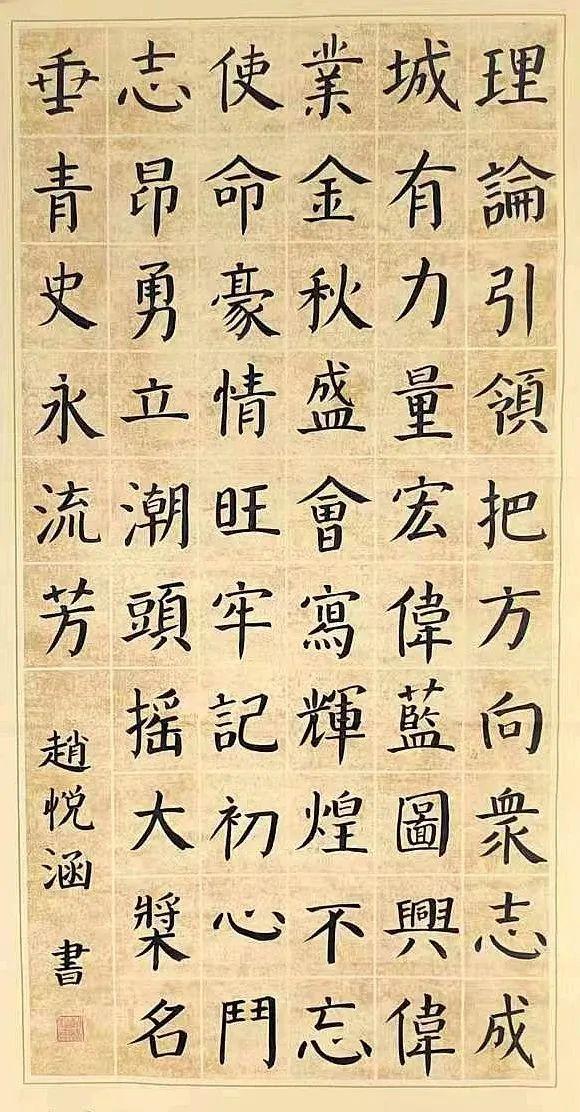 理論引領把方向衆志成
城有力量宏偉藍圖興偉
業金秋盛會寫輝煌不忘
使命豪情旺牢記初心鬥
志昂勇立潮頭摇大槳名
垂青史永流芳
趙悦涵 書